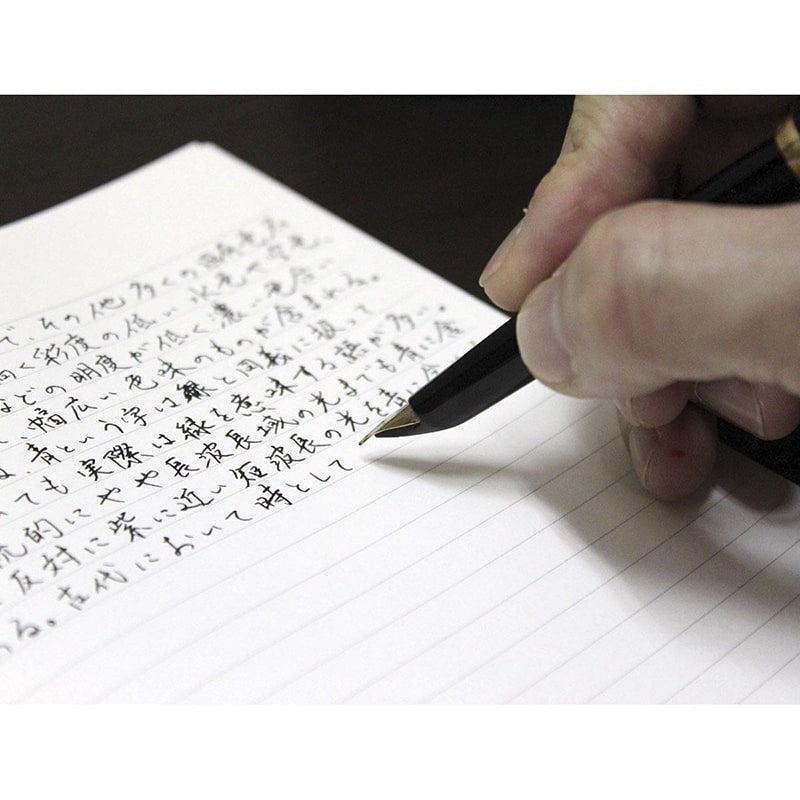 で、その他多くの
高く彩度の低い水色や空色、
などの明度が低く濃い色合い
幅広い色味のものが含まれる。
青という字は緑と同義に扱って
ても実際は緑を意味する語が多い。
的にやや長波長域の光までも青に含
反対に紫に近い短波長の光を青に含
る。古代において時として